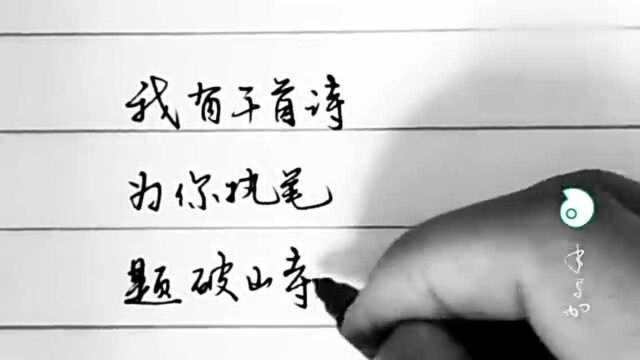 我有千首诗
为你执笔
题破山寺